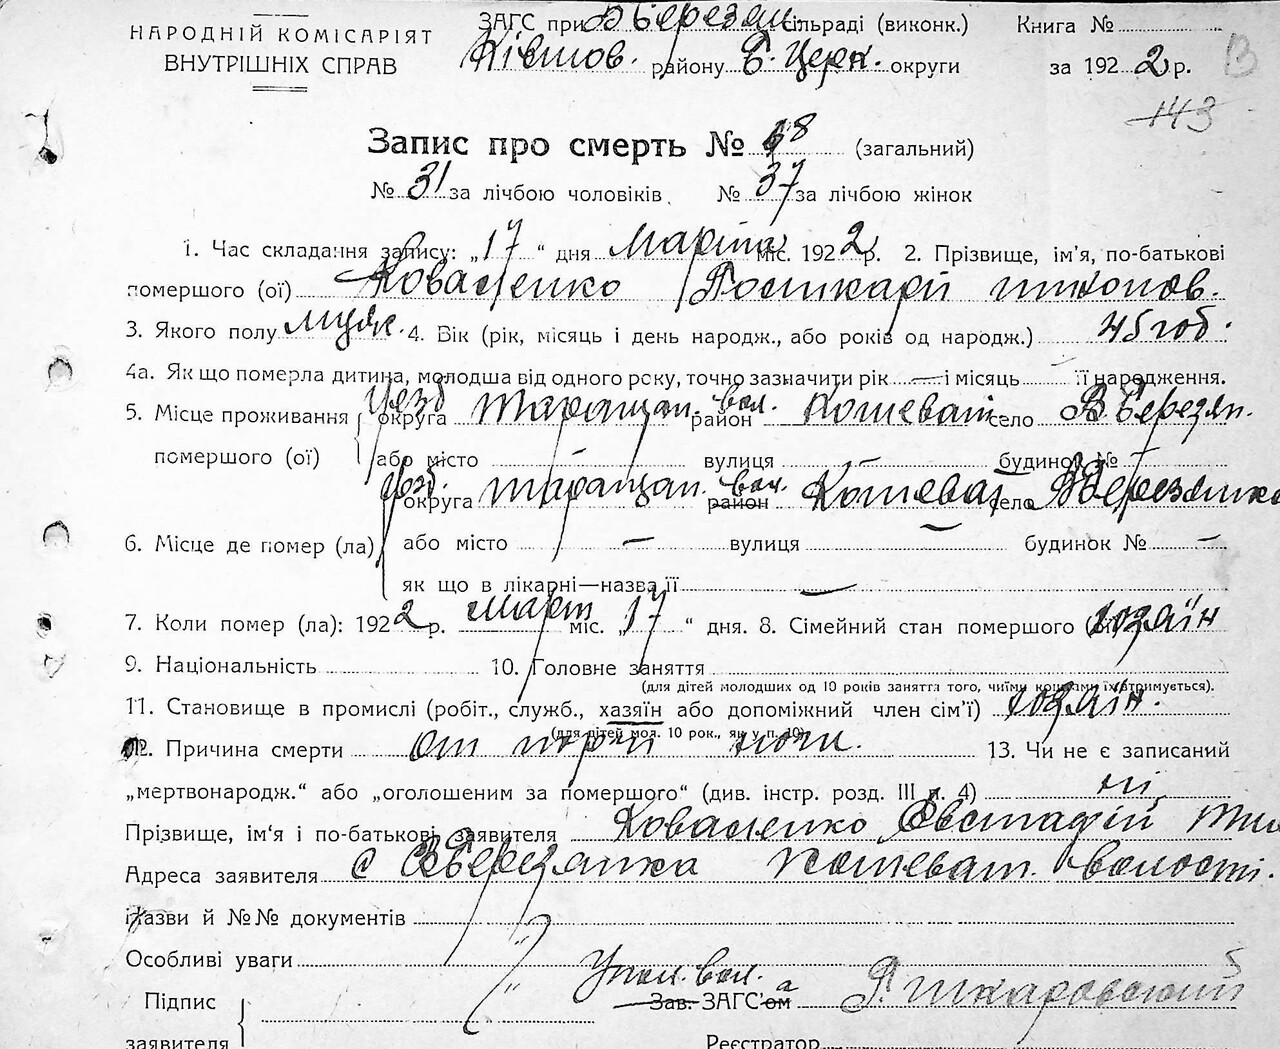 НАРОДНІЙ КОМІСАРІЯТ
ВНУТРІШНІХ СПРАВ
ЗАГС при В Березян. сільраді (виконк.)
районy Б. Церк. округи
Книга №
за 1922 р.
143
Запис про смерть № 68 (загальний)
№ 31 за лічбою чоловіків, № 37 за лічбою жінок
1. Час складання запису: „17“ дня Марта міс. 1922 р. 2. Прізвище, ім'я, по-батькові
помершого (ої) Коваленко тихонов.
3. Якого полу муж. 4. Вік (рік, місяць і день народж., або років од народж.) 45 год.
4а. Як що померла дитина, молодша від одного року, точно зазначити рік — і місяць її народження.
5. Місце проживання помершого (ої) уезд округа Таращан. вол. район Кошеват село В Березян.
або місто — вулиця — будинок № —
6. Місце де помер (ла) уезд. округа Таращан. вол. район Кошеват село В Березянка
або місто — вулиця — будинок № —
як що в лікарні—назва її —
7. Коли помер (ла): 1922 р. Март міс. „17“ дня. 8. Сімейний стан помершого (ої) хозяїн
9. Національність 10. Головне заняття
(для дітей молодших од 10 років заняття того, чиїми коштами їх утримується).
11. Становище в промислі (робіт., служб., хазяїн або допоміжний член сім'ї) хозяїн.
(для дітей мол. 10 рок., як у п. 10)
12. Причина смерти от ночи. 13. Чи не є записаний
„мертвонародж.“ або „оголошеним за помершого“ (див. інстр. розд. III п. 4) ні
Прізвище, ім'я і по-батькові заявителя Коваленко Євстафій
Адреса заявителя с Вберезянка Кошеват. волости.
Назви й №№ документів
Особливі уваги
Підпис
заявителя
Упол. вол.
Зав. ЗАГС'ом а Шкаровский
Реєстратор